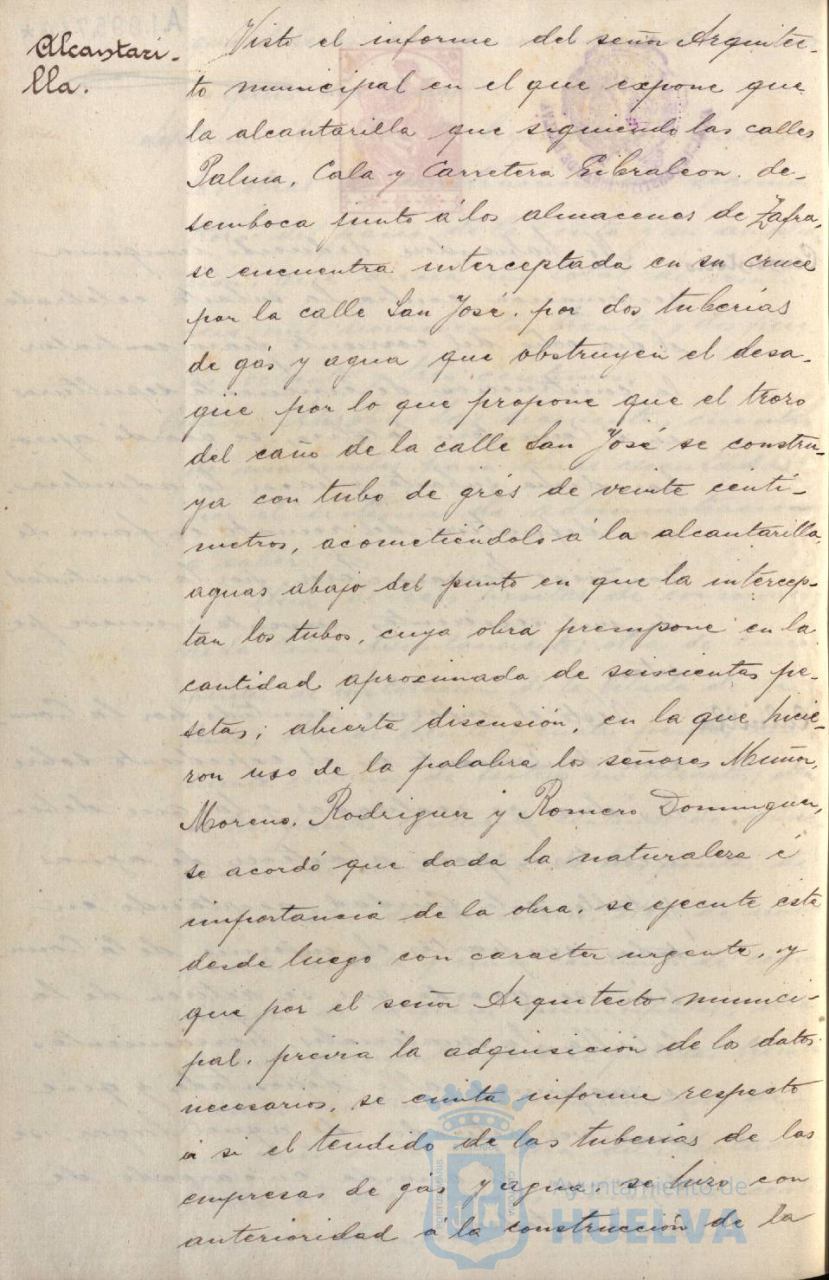 Alcantari-
lla.
Visto el informe del señor Arquitec-
to municipal en el que expone que
la alcantarilla que siguiendo las calles
Palma, Cala y Carretera Gibraleon. de-
semboca junto á los almacenes de Zafra,
se encuentra interceptada en su cruce
por la calle San José. por dos tuberías
de gás y agua que obstruyen el desa-
güe por lo que propone que el trozo
del caño de la calle San José se constru-
ya con tubo de grés de veinte centí-
metros, acometiéndolo á la alcantarilla,
aguas abajo del punto en que la intercep-
tan los tubos, cuya obra presupone en la
cantidad aproximada de seiscientas pe-
setas; abierta discusión, en la que hicie-
ron uso de la palabra los señores Muñoz,
Moreno, Rodriguez y Romero Dominguez,
se acordó que dada la naturaleza é
importancia de la obra, se ejecute esta
desde luego con caracter urgente, y
que por el señor Arquitecto munici-
pal, previa la adquisición de los datos
necesarios, se emita informe respecto
á si el tendido de las tuberías de las
empresas de gás y agua, se hizo con
anterioridad á la construcción de la
Ayuntamiento de
HUELVA